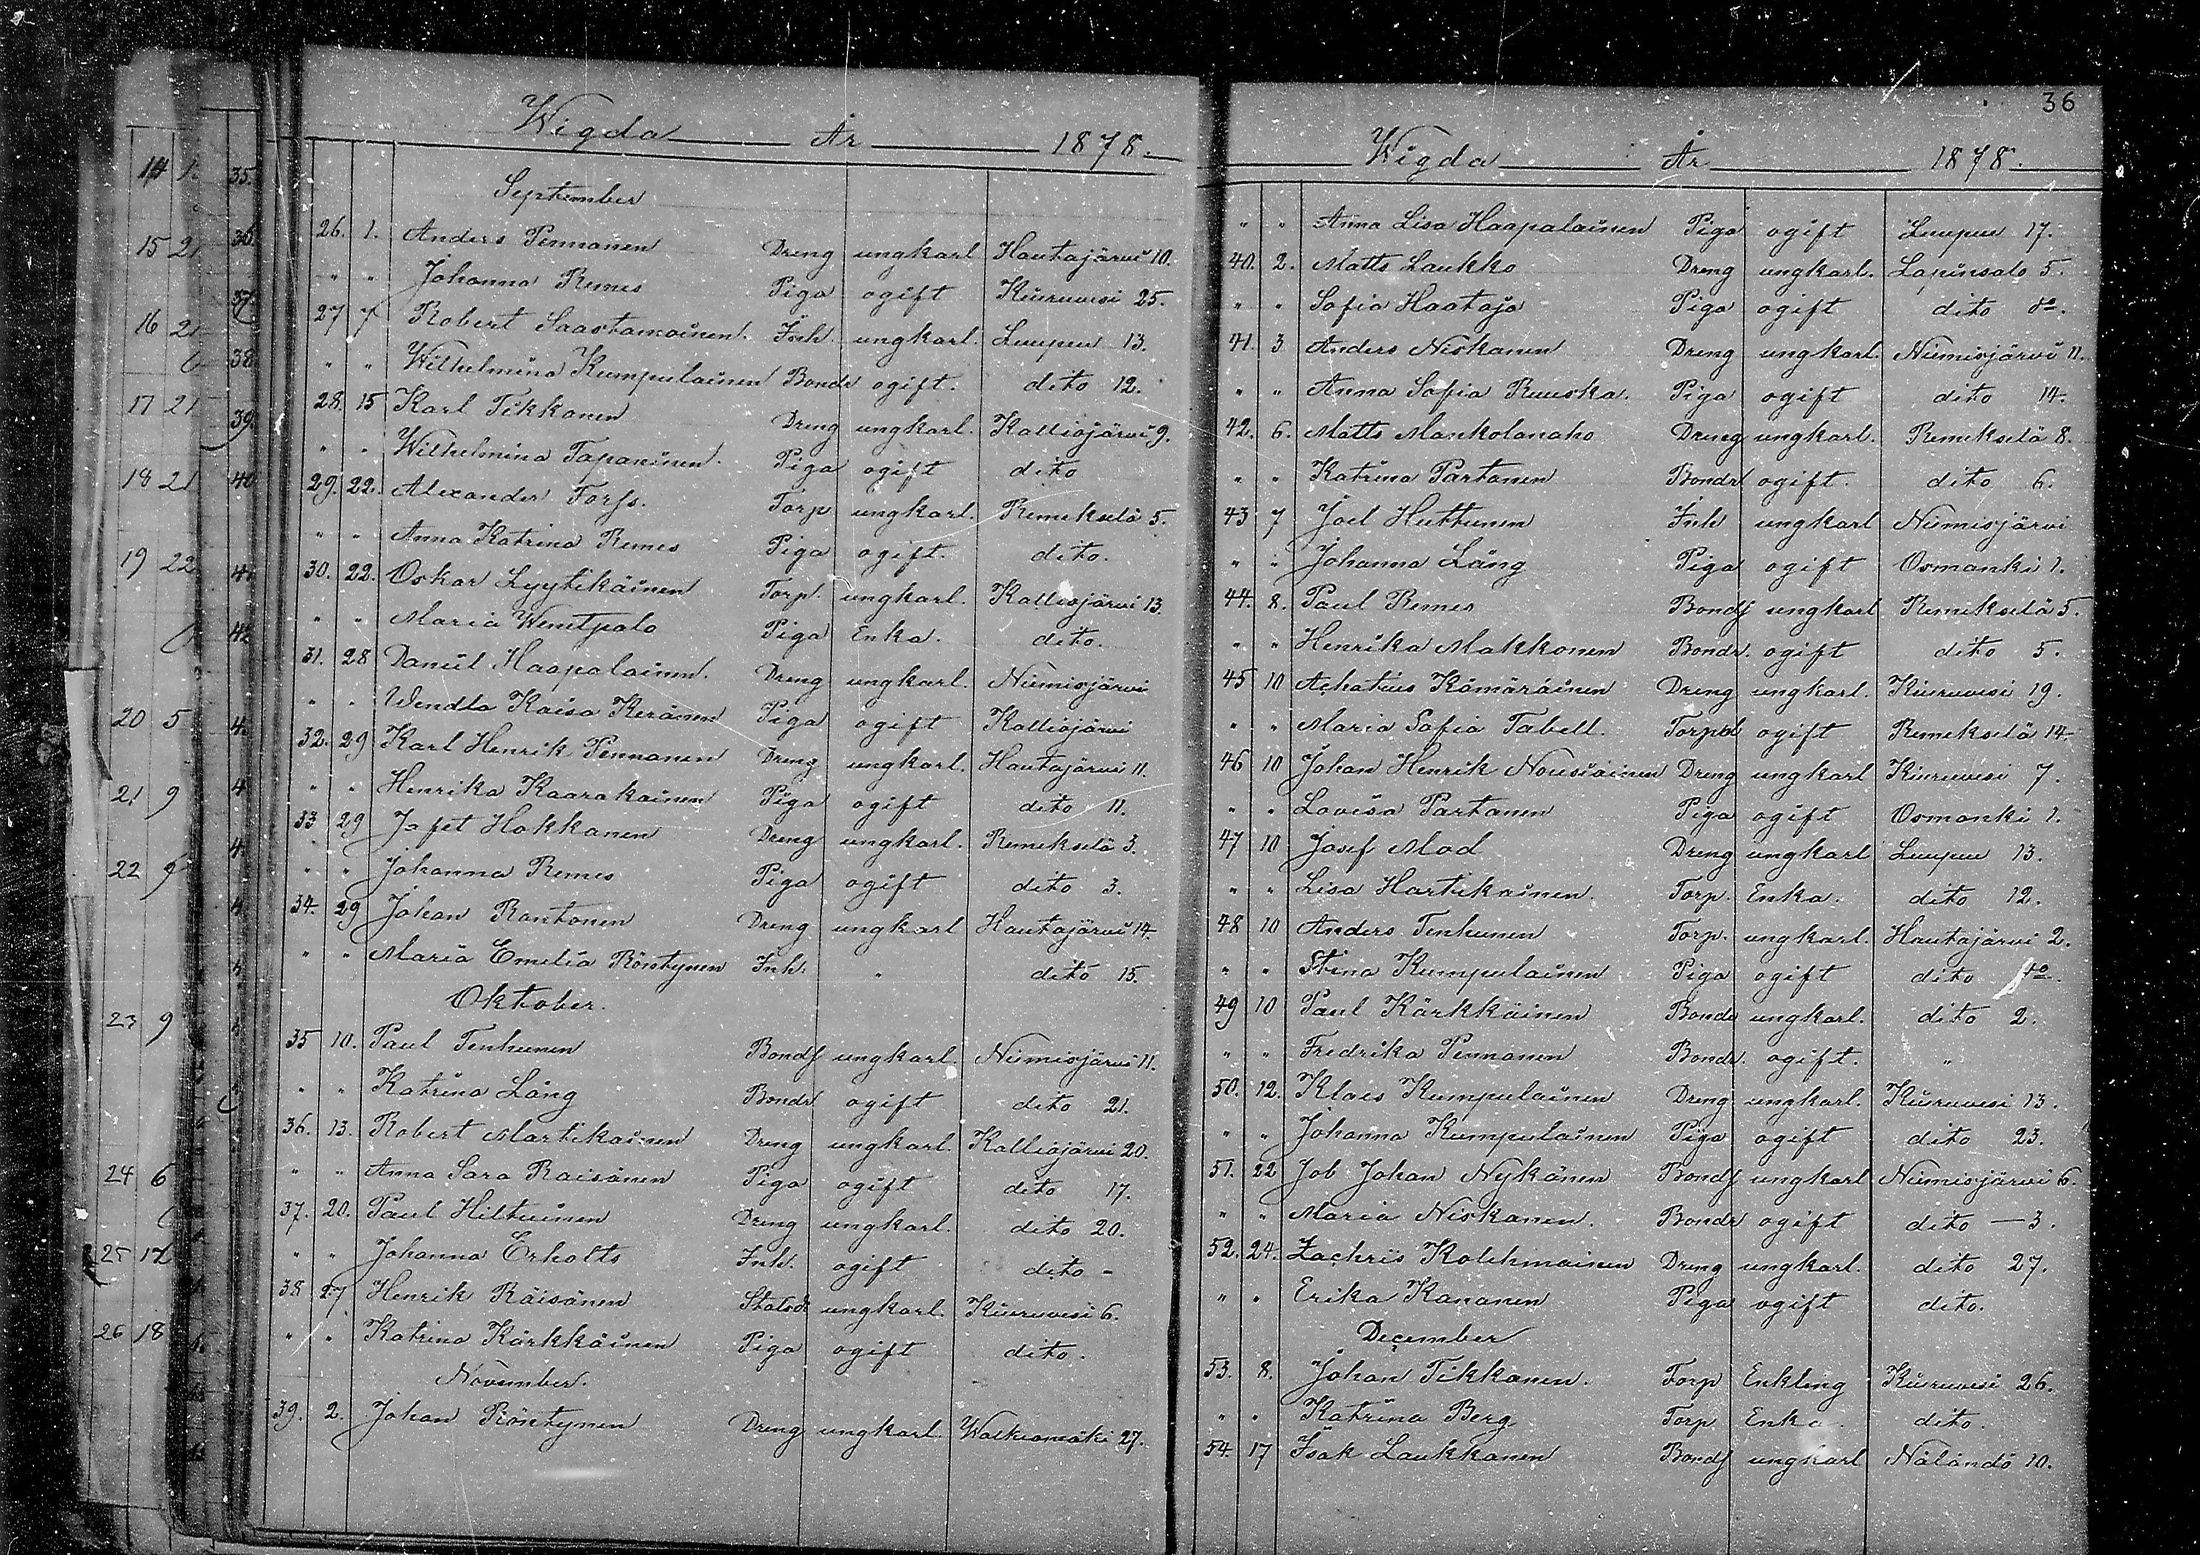 Wigda År 1878.
September
26. 1. Anders Pennanen Dreng ungkarl Hautajärvi 10.
" " Johanna Remes Piga ogift Kiuruvesi 25.
27 7 Robert Saastamoinen. Inh. ungkarl. Luupuu 13.
" " Wilhelmina Kumpulainen Bondr ogift. dito 12.
28. 15 Karl Tikkanen Dreng ungkarl. Kalliojärvi 9.
" " Wilhelmina Tapaninen. Piga ogift dito
29. 22. Alexander Forss. Torp ungkarl. Remekselä 5.
" " Anna Katrina Remes Piga ogift. dito.
30. 22. Oskar Lyytikäinen Torp. ungkarl. Kalliojärvi 13.
" " Maria Piga Enka. dito.
31. 28 Daniel Haapalainen. Dreng ungkarl. Niemisjärvi
" " Wendla Kaisa Keränen Piga ogift Kalliojärvi
32. 29 Karl Henrik Pennanen Dreng ungkarl. Hautajärvi 11.
" " Henrika Kaarakainen Piga ogift dito 11.
33 29 Jafet Hakkanen Dreng ungkarl. Remekselä 3.
" " Johanna Remes Piga ogift dito 3.
34. 29 Johan Rantonen Dreng ungkarl Hautajärvi 14.
" " Maria Emelia Röntynen Inh. " dito 15.
Oktober.
35 10. Paul Tenhunen Bondf ungkarl. Niemisjärvi 11.
" " Katrina Lång Bondr ogift dito 21.
36. 13. Robert Martikainen Dreng ungkarl. Kalliojärvi 20.
" " Anna Sara Raisänen Piga ogift dito 17.
37. 20. Paul Hiltunen Dreng ungkarl. dito 20.
" " Johanna Erholts Inh. ogift dito -
38 27 Henrik Räisänen ungkarl. Kiuruvesi 6.
" " Katrina Kärkkäinen Piga ogift dito.
November.
39. 2. Johan Röntynen Dreng ungkarl. Walkiamäki 27.
36
Wigda År 1878.
" " Anna Lisa Haapalainen Piga ogift Luupuu 17.
40. 2. Matts Laukko Dreng ungkarl. Lapinsalo 5.
" " Sofia Haataja Piga ogift dito do.
41. 3 Anders Niskanen Dreng ungkarl. Niemisjärvi 11.
" " Anna Sofia Ruuska. Piga ogift dito 14.
42. 6. Matts Mankolanaho Dreng ungkarl. Remekselä 8.
" " Katrina Partanen Bondr ogift. dito 6.
43 7 Joel Huttunen Inh ungkarl Niemisjärvi
" " Johanna Lång Piga ogift Osmanki 1.
44. 8. Paul Remes Bondf ungkarl Remekselä 5.
" " Henrika Makkonen Bondr. ogift dito 5.
45 10 Achatius Kämäräinen Dreng ungkarl. Kiuruvesi 19.
" " Maria Sofia Tabell. ogift Remekselä 14.
46 10 Johan Henrik Nousiainen Dreng ungkarl Kiuruvesi 7.
" " Lovisa Partanen Piga ogift Osmanki 1.
47 10 Josef Mod Dreng ungkarl Luupuu 13.
" " Lisa Hartikainen. Torp. Enka. dito 12.
48 10 Anders Tenhunen Torp. ungkarl. Hautajärvi 2.
" " Stina Kumpulainen Piga ogift dito do.
49 10 Paul Kärkkäinen Bonde ungkarl. dito 2.
" " Fredrika Pennanen Bondr. ogift. "
50. 12. Klaes Kumpulainen Dreng ungkarl. Kiuruvesi 13.
" " Johanna Kumpulainen Piga ogift dito 23.
51. 22 Job Johan Nykänen Bondf ungkarl Niemisjärvi 6.
" " Maria Niskanen. Bondr ogift dito — 3.
52. 24. Zachris Kolehmainen Dreng ungkarl. dito 27.
" " Erika Kananen Piga ogift dito.
December
53. 8. Johan Tikkanen. Torp Enkling Kiuruvesi 26.
" " Katrina Berg Torp Enka dito.
54. 17 Isak Laukkanen Bondf ungkarl Näläntö 10.